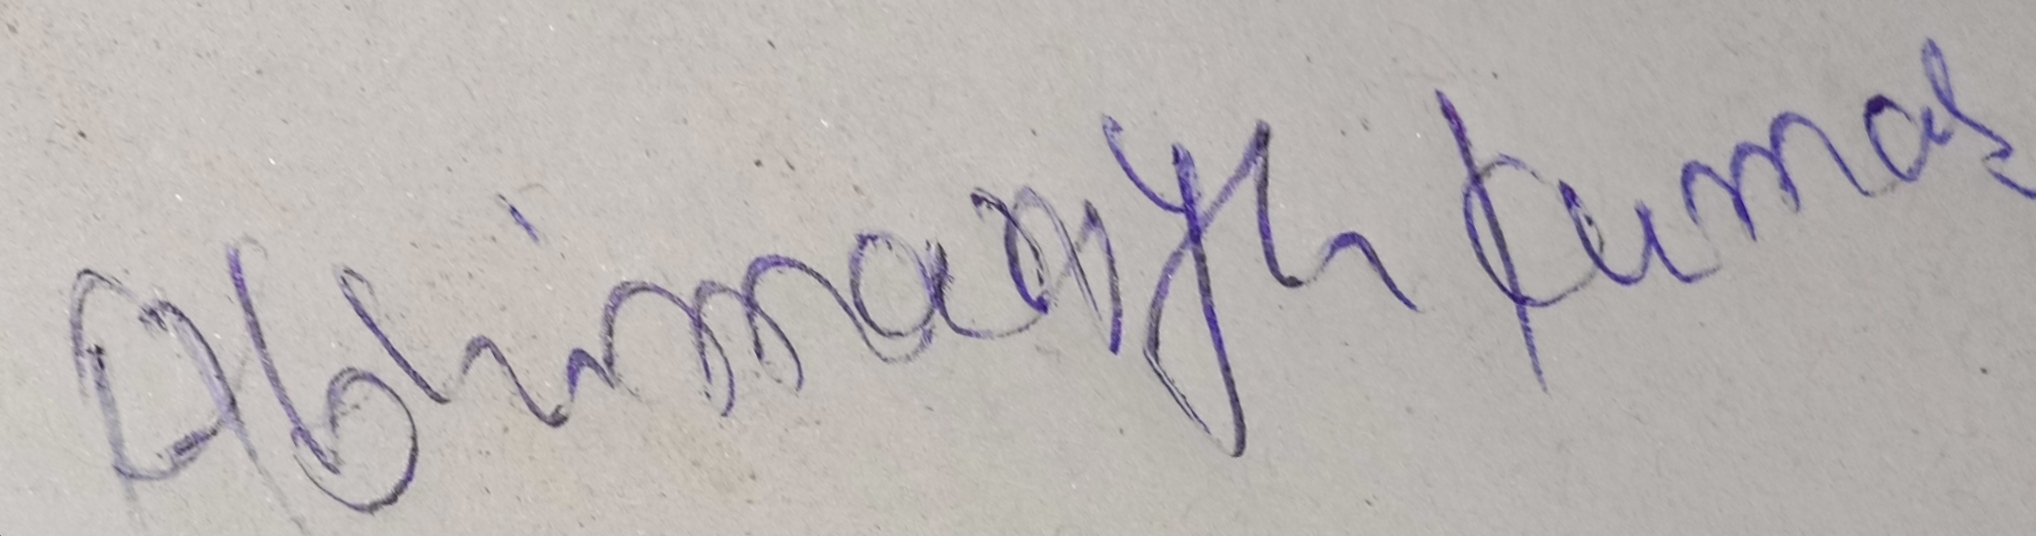 Abhimanyh kumar